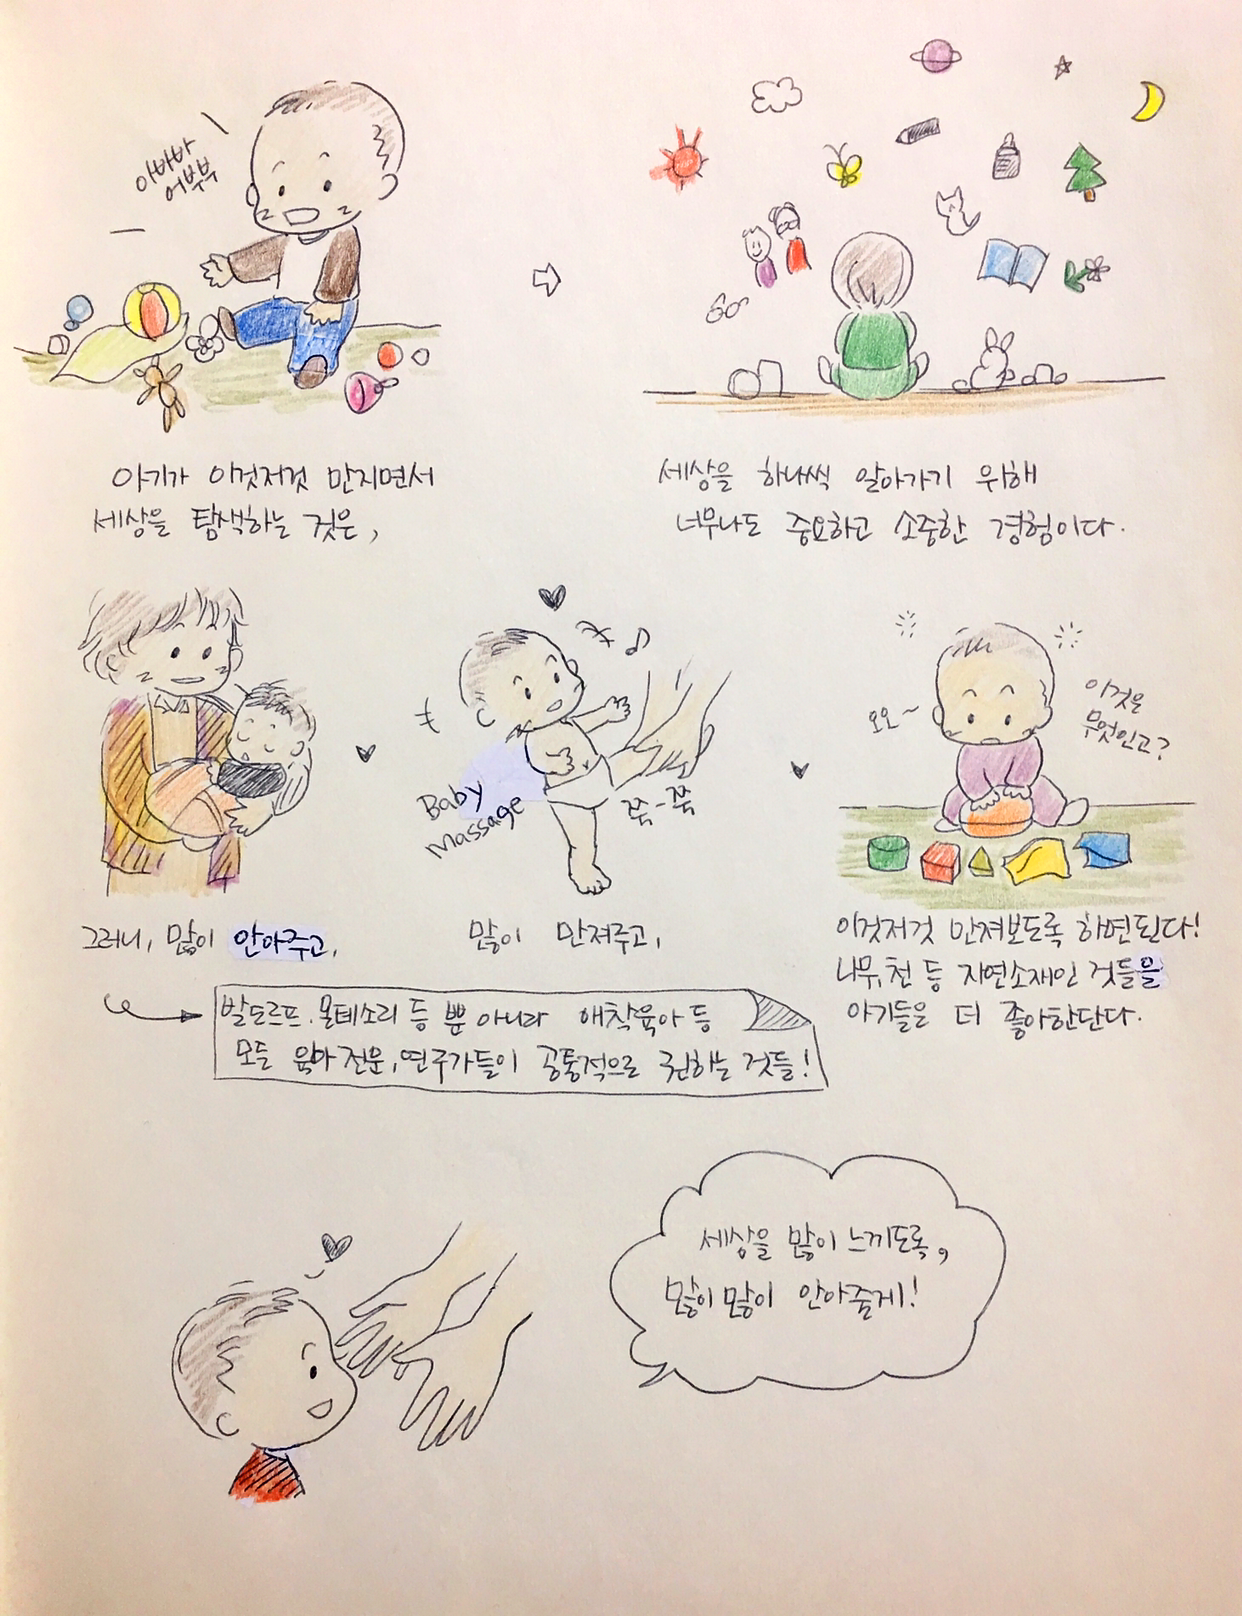 아바바
어부부
아기가 이것저것 만지면서
세상을 탐색하는 것은,
세상을 하나씩 알아가기 위해
너무나도 중요하고 소중한 경험이다.
그러니, 많이 안아주고,
Baby
Massage
쭉-쭉
많이 만져주고,
오오~
이것은
무엇인고?
이것저것 만져보도록 하면된다!
나무, 천 등 자연소재인 것들을
아기들은 더 좋아한단다.
발도르프. 몬테소리 등 뿐 아니라 애착육아 등
모든 육아 전문, 연구가들이 공통적으로 권하는 것들!
세상을 많이 느끼도록,
많이 많이 안아줄게!